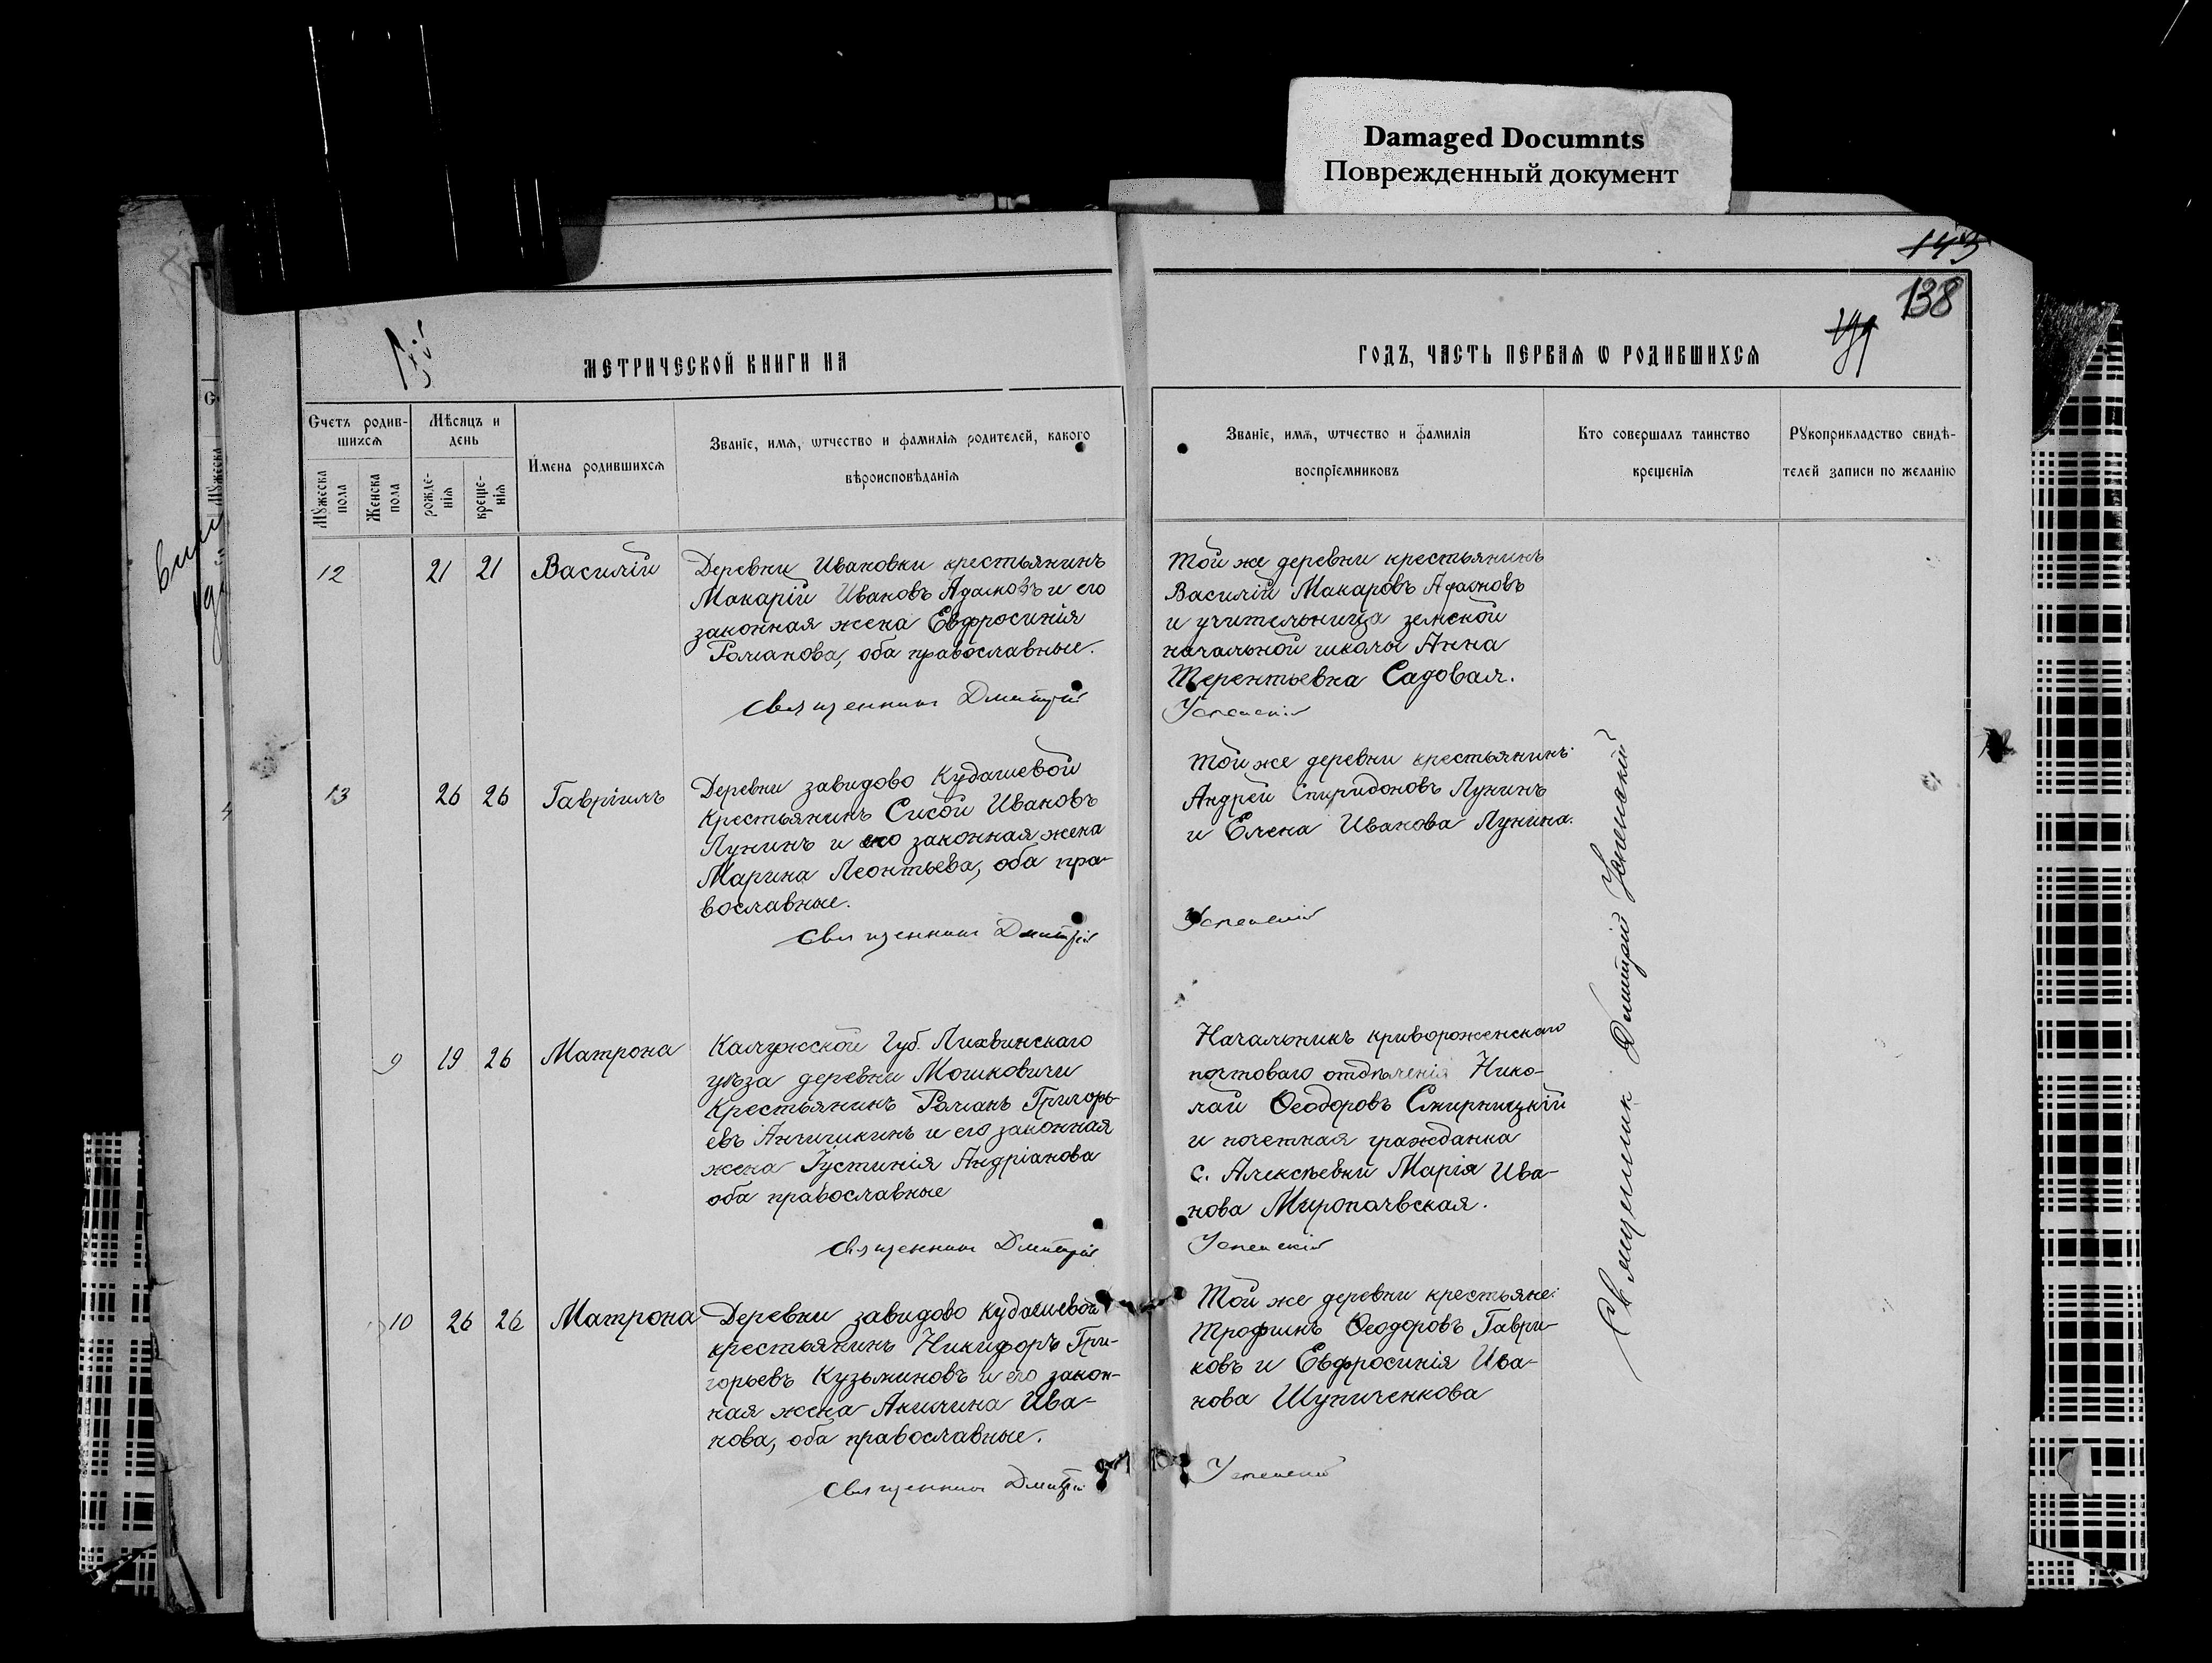 Damaged Documnts
Поврежденный документ
145
138
МЕТРИЧЕСКОЙ КНИГИ НА
ГОДЪ, ЧАСТЬ ПЕРВАЯ Ѡ РОДИВШИХСЯ
Счетъ родив-
шихся
Мѣсяцъ и
день
Имена родившихся
Званіе, имя, ѡтчество и фамилія родителей, какого
вѣроисповѣданія
Мужеска
пола
Женска
пола
рожде-
нія
креще-
нія
Званіе, имя, ѡтчество и фамилія
воспріемниковъ
Кто совершалъ таинство
крещенія
Рукоприкладство свидѣ-
телей записи по желанію
12
21
21
Василій
Деревни Ивановки крестьянинъ
Макарій Ивановъ Адамовъ и его
законная жена Евфросинія
Романова, оба православные.
Священникъ Дмитрій
Той же деревни крестьянинъ
Василій Макаровъ Адамовъ
и учительница земской
начальной школы Анна
Терентьевна Садовая.
Успенскій
13
26
26
Гавріилъ
Деревни завидово Кудашевой
крестьянинъ Сисой Ивановъ
Лунинъ и его законная жена
Марина Леонтьева, оба пра-
вославные.
Священникъ Дмитрій
Той же деревни крестьянинъ
Андрей Спиридоновъ Лунинъ
и Елена Иванова Лунина.
Успенскій
9
19
26
Матрона
Калужской Губ. Лихвинскаго
уѣза деревни Мошковичи
крестьянинъ Романъ Григорь-
евъ Анчишкинъ и его законная
жена Іустинія Андріанова
оба православные
Священникъ Дмитрій
Начальникъ криворожскаго
почтоваго отдѣленія Нико-
лай Ѳеодоровъ Смирницкій
и почетная гражданка
с. Алексѣевки Марія Ива-
нова Миропольская.
Успенскій
10
26
26
Матрона
Деревни завидово Кудашевой
крестьянинъ Никифоръ Гри-
горьевъ Кузьминовъ и его закон-
ная жена Акилина Ива-
нова, оба православные.
Священникъ Дмитрій
Той же деревни крестьяне:
Трофимъ Ѳеодоровъ Гаври-
ковъ и Евфросинія Ива-
нова Шупиченкова
Успенскій
Священникъ Дмитрій Успенскій